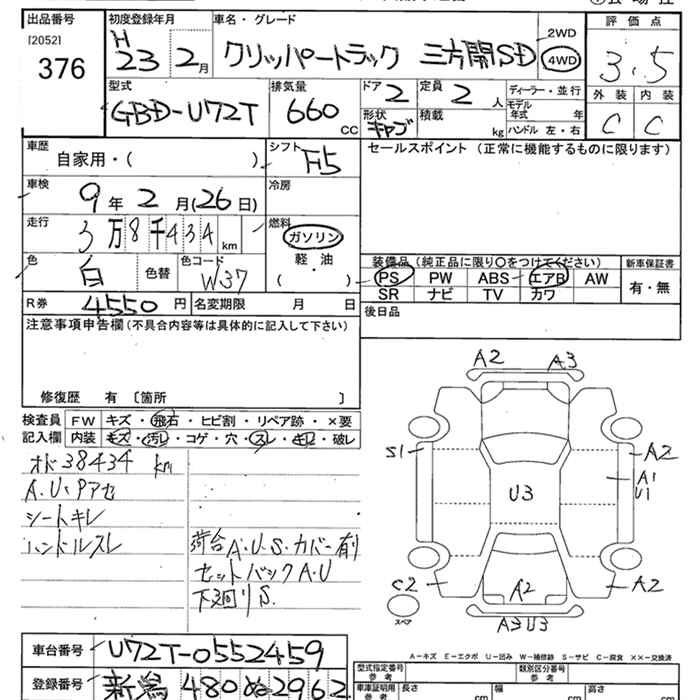 出品番号
[2052]
376
初度登録年月
H
23 2月
車名・グレード
クリッパートラック 三方開SD
2WD
4WD
評価点
3.5
外装 内装
C C
型式
GBD-U72T
排気量
660 CC
ドア 2
形状
キャブ
定員 2 人
積載 kg
ディーラー・並行
モデル年式 年
ハンドル 左・右
車歴
自家用・( )
シフト F5
セールスポイント (正常に機能するものに限ります)
車検
9年2月(26日)
冷房
走行
3万8千434km
燃料
ガソリン
軽・油
( )
色
白
色替
色コード
W37
装備品(純正品に限り○をつけてください)
PS PW ABS エアB AW
SR ナビ TV カワ
新車保証書
有・無
R券 4550円
名変期限 月 日
後日品
注意事項申告欄(不具合内容等は具体的に記入して下さい)
修復歴 有 〔箇所 〕
検査員記入欄
FW キズ・飛石・ヒビ割・リペア跡・×要
内装 キズ・汚レ・コゲ・穴・スレ・キレ・破レ
オド38434km
A.U.Pアセ
シートキレ
ハンドルスレ
荷台A.U.S.カバー有り
セットバックA.U
下廻りS.
A2 A3
S1
A2
A1
U1
U3
C2
A2
A2
A3U3
スペア
A=キズ E=エクボ U=凹み W=補修跡 S=サビ C=腐食 ××=交換済
車台番号
U72T-0552459
登録番号
新潟 480 ぬ 2962
型式指定番号
参考
類別区分番号
参考
車庫証明用
参考
長さ cm
幅 cm
高さ cm